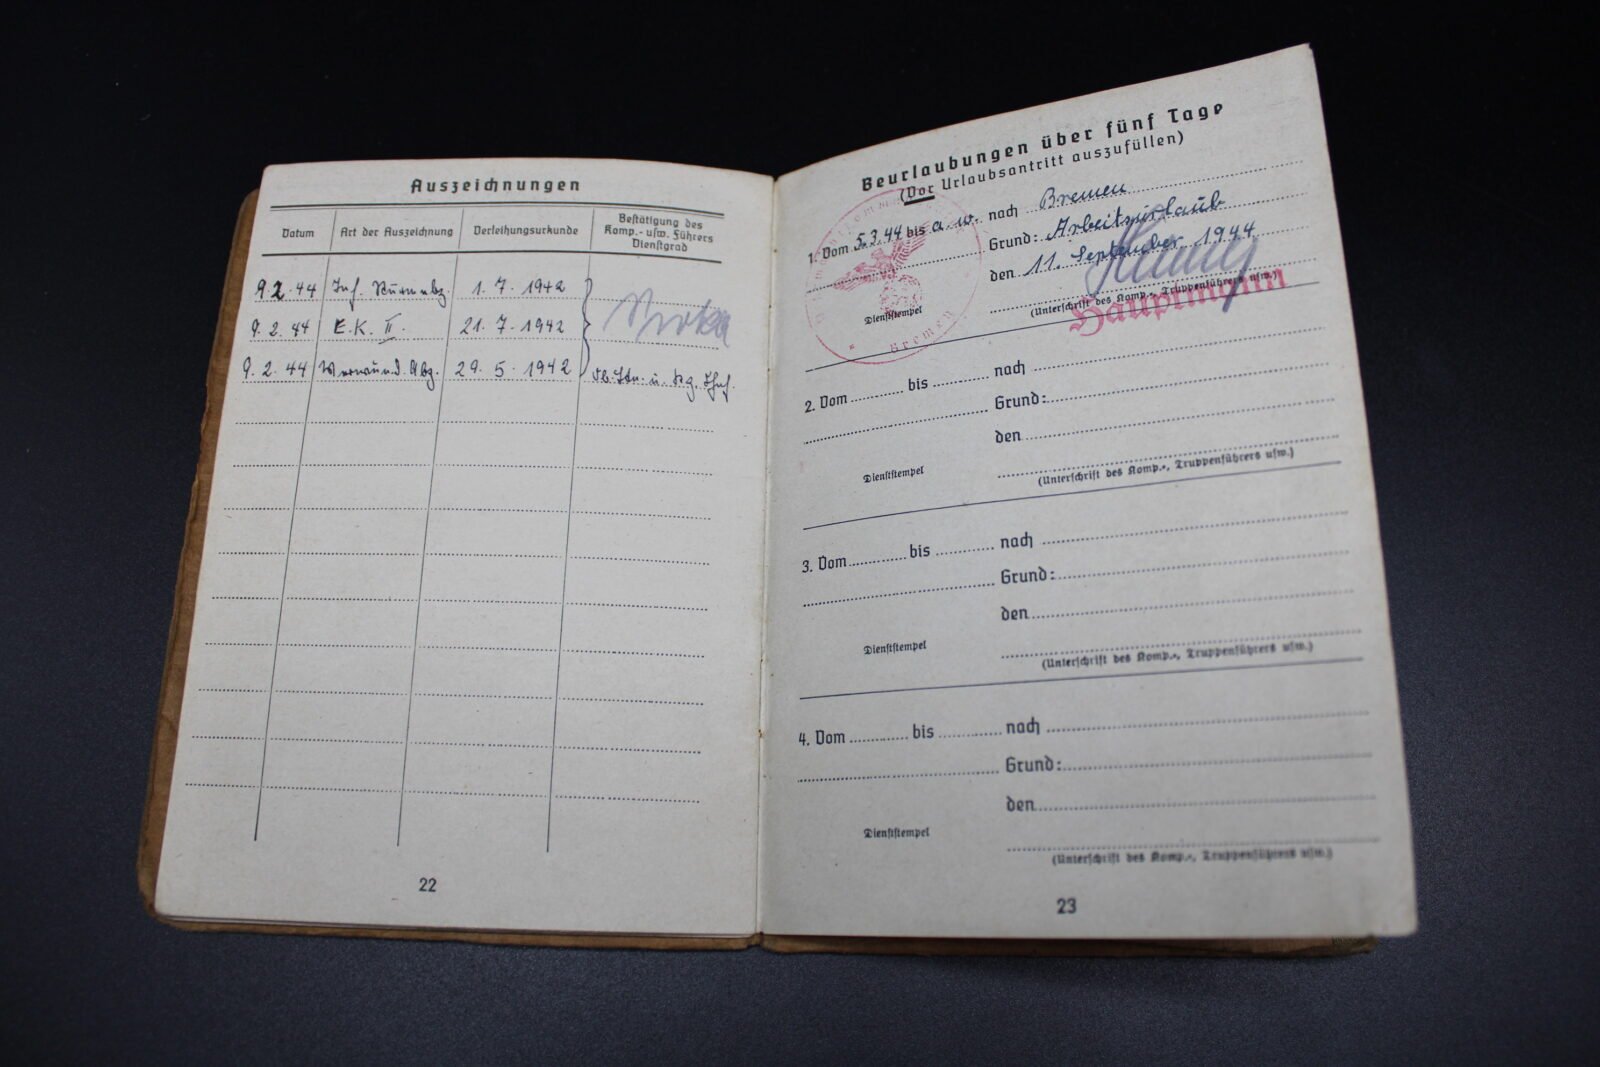 Auszeichnungen
Datum Art der Auszeichnung Verleihungsurkunde Bestätigung des Komp.- usw. Führers Dienstgrad
9.2.44 Inf. Sturmabz. 1.7.1942
9.2.44 E.K. II. 21.7.1942
9.2.44 Verwund. Abz. 29.5.1942
22
Beurlaubungen über fünf Tage
(Vor Urlaubsantritt auszufüllen)
1. Vom 5.3.44 bis a.w. nach Bremen
Grund: Arbeitsurlaub
den 11. September 1944
Dienststempel
(Unterschrift des Komp.-, Truppenführers usw.)
Hauptmann
Bremen
2. Vom bis nach
Grund:
den
Dienststempel
(Unterschrift des Komp.-, Truppenführers usw.)
3. Vom bis nach
Grund:
den
Dienststempel
(Unterschrift des Komp.-, Truppenführers usw.)
4. Vom bis nach
Grund:
den
Dienststempel
(Unterschrift des Komp.-, Truppenführers usw.)
23